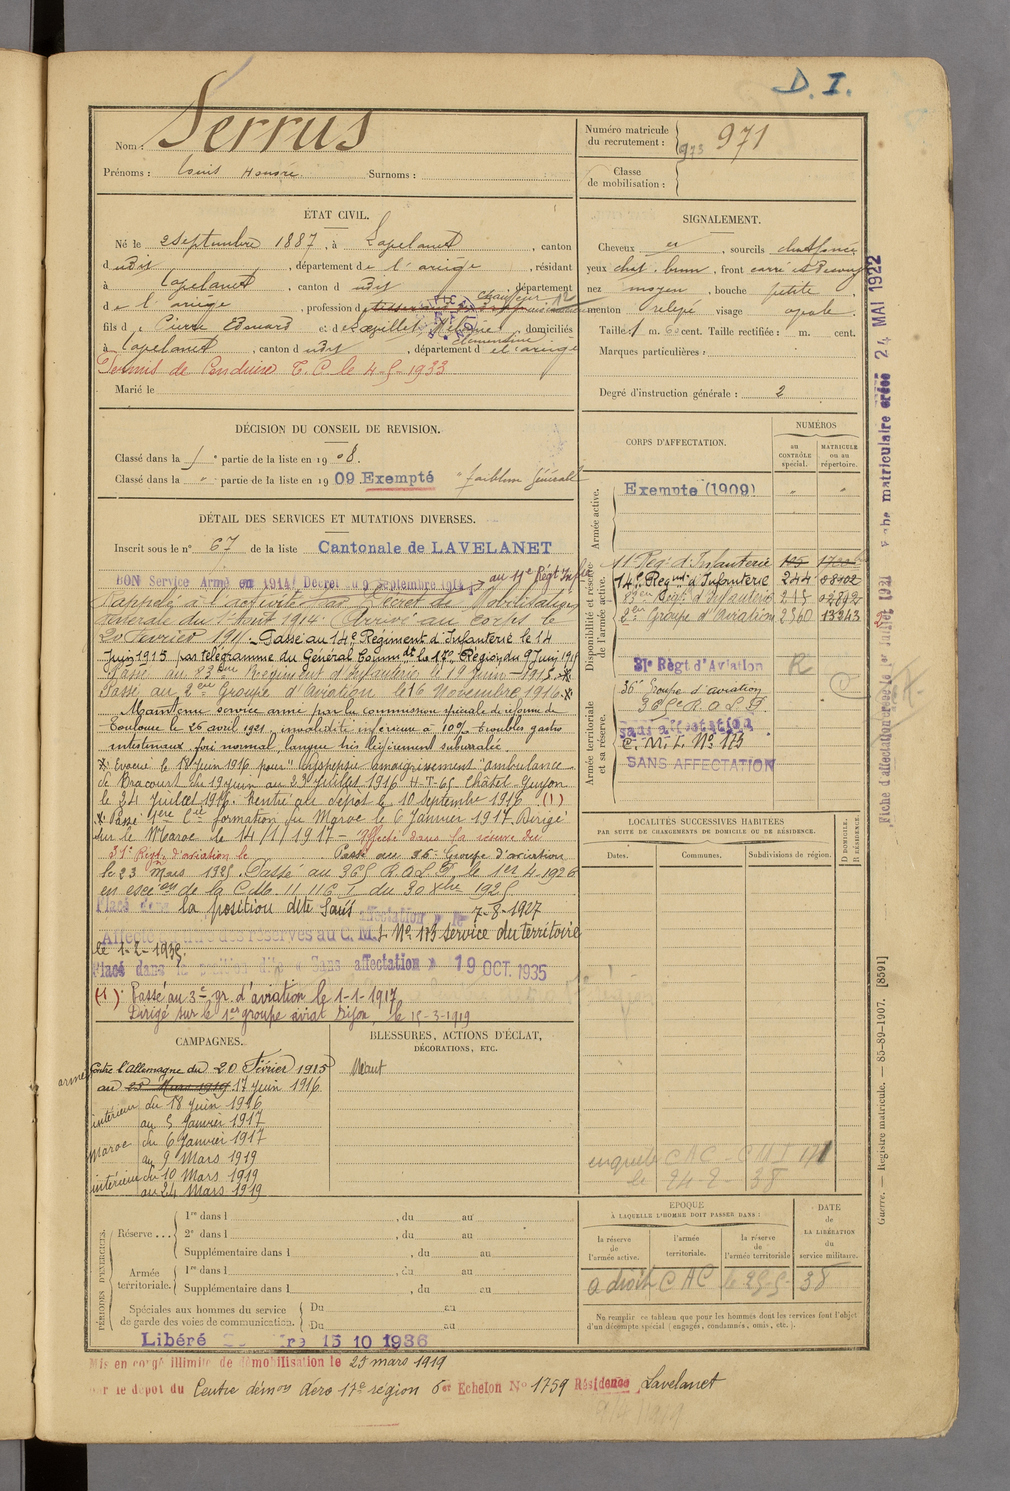 D. I.
Nom : Serrus
Prénoms : Louis Honoré Surnoms :
Numéro matricule du recrutement : 973 971
Classe de mobilisation :
ÉTAT CIVIL.
Né le 2 septembre 1887, à Lavelanet, canton
dudit, département de l'ariège, résidant
à Lavelanet, canton dudit, département
de l'ariège, profession de tisserand chauffeur
fils de Pierre Edouard et de Mélanie Clémentine domiciliés
à Lavelanet, canton dudit, département de l'ariège
Permis de Conduire T. C. le 4-5-1933
Marié le
SIGNALEMENT.
Cheveux , sourcils chat foncé
yeux chat. brun, front carré
nez moyen, bouche petite,
menton relevé visage ovale.
Taille 1 m. 60 cent. Taille rectifiée : m. cent.
Marques particulières :
Degré d'instruction générale : 2
DÉCISION DU CONSEIL DE REVISION.
Classé dans la 5e partie de la liste en 1908.
Classé dans la " partie de la liste en 1909 Exempté faiblesse générale
DÉTAIL DES SERVICES ET MUTATIONS DIVERSES.
Inscrit sous le n° 67 de la liste Cantonale de LAVELANET
BON Service Armé en 1914 Décret du 9 Septembre 1914 au 11e Régt Infie
Rappelé à l'activité par Décret de Mobilisation
Générale du 1er Août 1914. Arrivé au corps le
20 Février 1915. Passé au 14e Régiment d'Infanterie le 14
Juin 1915 par télégramme du Général Commdt la 17e Région du 9 Juin 1915
Passé au 83ème Régiment d'Infanterie le 19 Juin 1915.
Passé au 2ème Groupe d'Aviation le 16 Novembre 1916.
Maintenu service armé par la commission spéciale de réforme de
Toulouse le 26 avril 1921 invalidité inférieure à 10% troubles gastro
intestinaux, foie normal, langue très légèrement suburralée.
Evacué le 18 juin 1916 pour "dyspepsie amaigrissement" ambulance
de Bracourt du 19 juin au 23 juillet 1916 H-T-65 Châtel-Guyon
le 24 Juillet 1916. Rentré au dépôt le 10 septembre 1916 (1)
Passé 4ère Cie formation du Maroc le 6 Janvier 1917. Dirigé
sur le Maroc le 14/1/1917 - Affecté dans la réserve du
31e Régt d'aviation le Passé au 36e Groupe d'aviation
le 23 Mars 1925. Passé au 36e R.A.L.P. le 1er 4-1926
en exécon de la C.M. 11 116 T du 30 Xbre 1925
Placé dans la position dite Sans affectation le 7-8-1927
Affecté des réserves au C.M.I. N° 173 service du territoire
le 1-2-1935.
Placé dans la position dite « Sans affectation » 19 OCT. 1935
(1) Passé au 3e gr. d'aviation le 1-1-1917
Dirigé sur le 1er groupe aviat Dijon, le 15-3-1919
CORPS D'AFFECTATION.
NUMÉROS
au CONTRÔLE spécial.
MATRICULE ou au répertoire.
Armée active.
Exempté (1909) " "
Disponibilité et réserve de l'armée active.
11 Régt d'Infanterie
14e Régiment d'Infanterie 244 08802
83ème Régt d'Infanterie 215 02892
2ème Groupe d'Aviation 2560 13343
31e Régt d'Aviation R
Armée territoriale et sa réserve.
36e Groupe d'aviation
36e R.A.L.P.
Sans affectation
C.M.I. N° 173
SANS AFFECTATION
LOCALITÉS SUCCESSIVES HABITÉES
PAR SUITE DE CHANGEMENTS DE DOMICILE OU DE RÉSIDENCE.
Dates. Communes. Subdivisions de région. D DOMICILE. R RÉSIDENCE.
enquête CAC - CMI 171
le 24-2-38
CAMPAGNES.
Contre l'Allemagne du 20 Février 1915
armée au 25 Mars 1919 17 Juin 1916
intérieur du 18 Juin 1916
au 5 Janvier 1917
Maroc du 6 Janvier 1917
au 9 Mars 1919
intérieur du 10 Mars 1919
au 24 Mars 1919
BLESSURES, ACTIONS D'ÉCLAT,
DÉCORATIONS, ETC.
Néant
PÉRIODES D'EXERCICES.
Réserve ... 1re dans l , du au
2e dans l , du au
Supplémentaire dans l , du au
Armée territoriale. 1re dans l , du au
Supplémentaire dans l , du au
Spéciales aux hommes du service de garde des voies de communication. Du au
Du au
ÉPOQUE
À LAQUELLE L'HOMME DOIT PASSER DANS :
la réserve de l'armée active.
l'armée territoriale.
la réserve de l'armée territoriale
DATE DE LA LIBÉRATION du service militaire.
a droit CAC le 25-5-38
Ne remplir ce tableau que pour les hommes dont les services font l'objet
d'un décompte spécial (engagés, condamnés, omis, etc.).
Libéré 15 10 1936
Mis en congé illimité de démobilisation le 25 mars 1919
par le dépôt du Centre démon Aéro 17e région 6er Echelon N° 1759 Résidence Lavelanet
Fiche d'affectation créée le 1er Juillet 1921 Fiche matriculaire créée 24 MAI 1922
Guerre. — Registre matricule. — 85-89-1907. [8591]